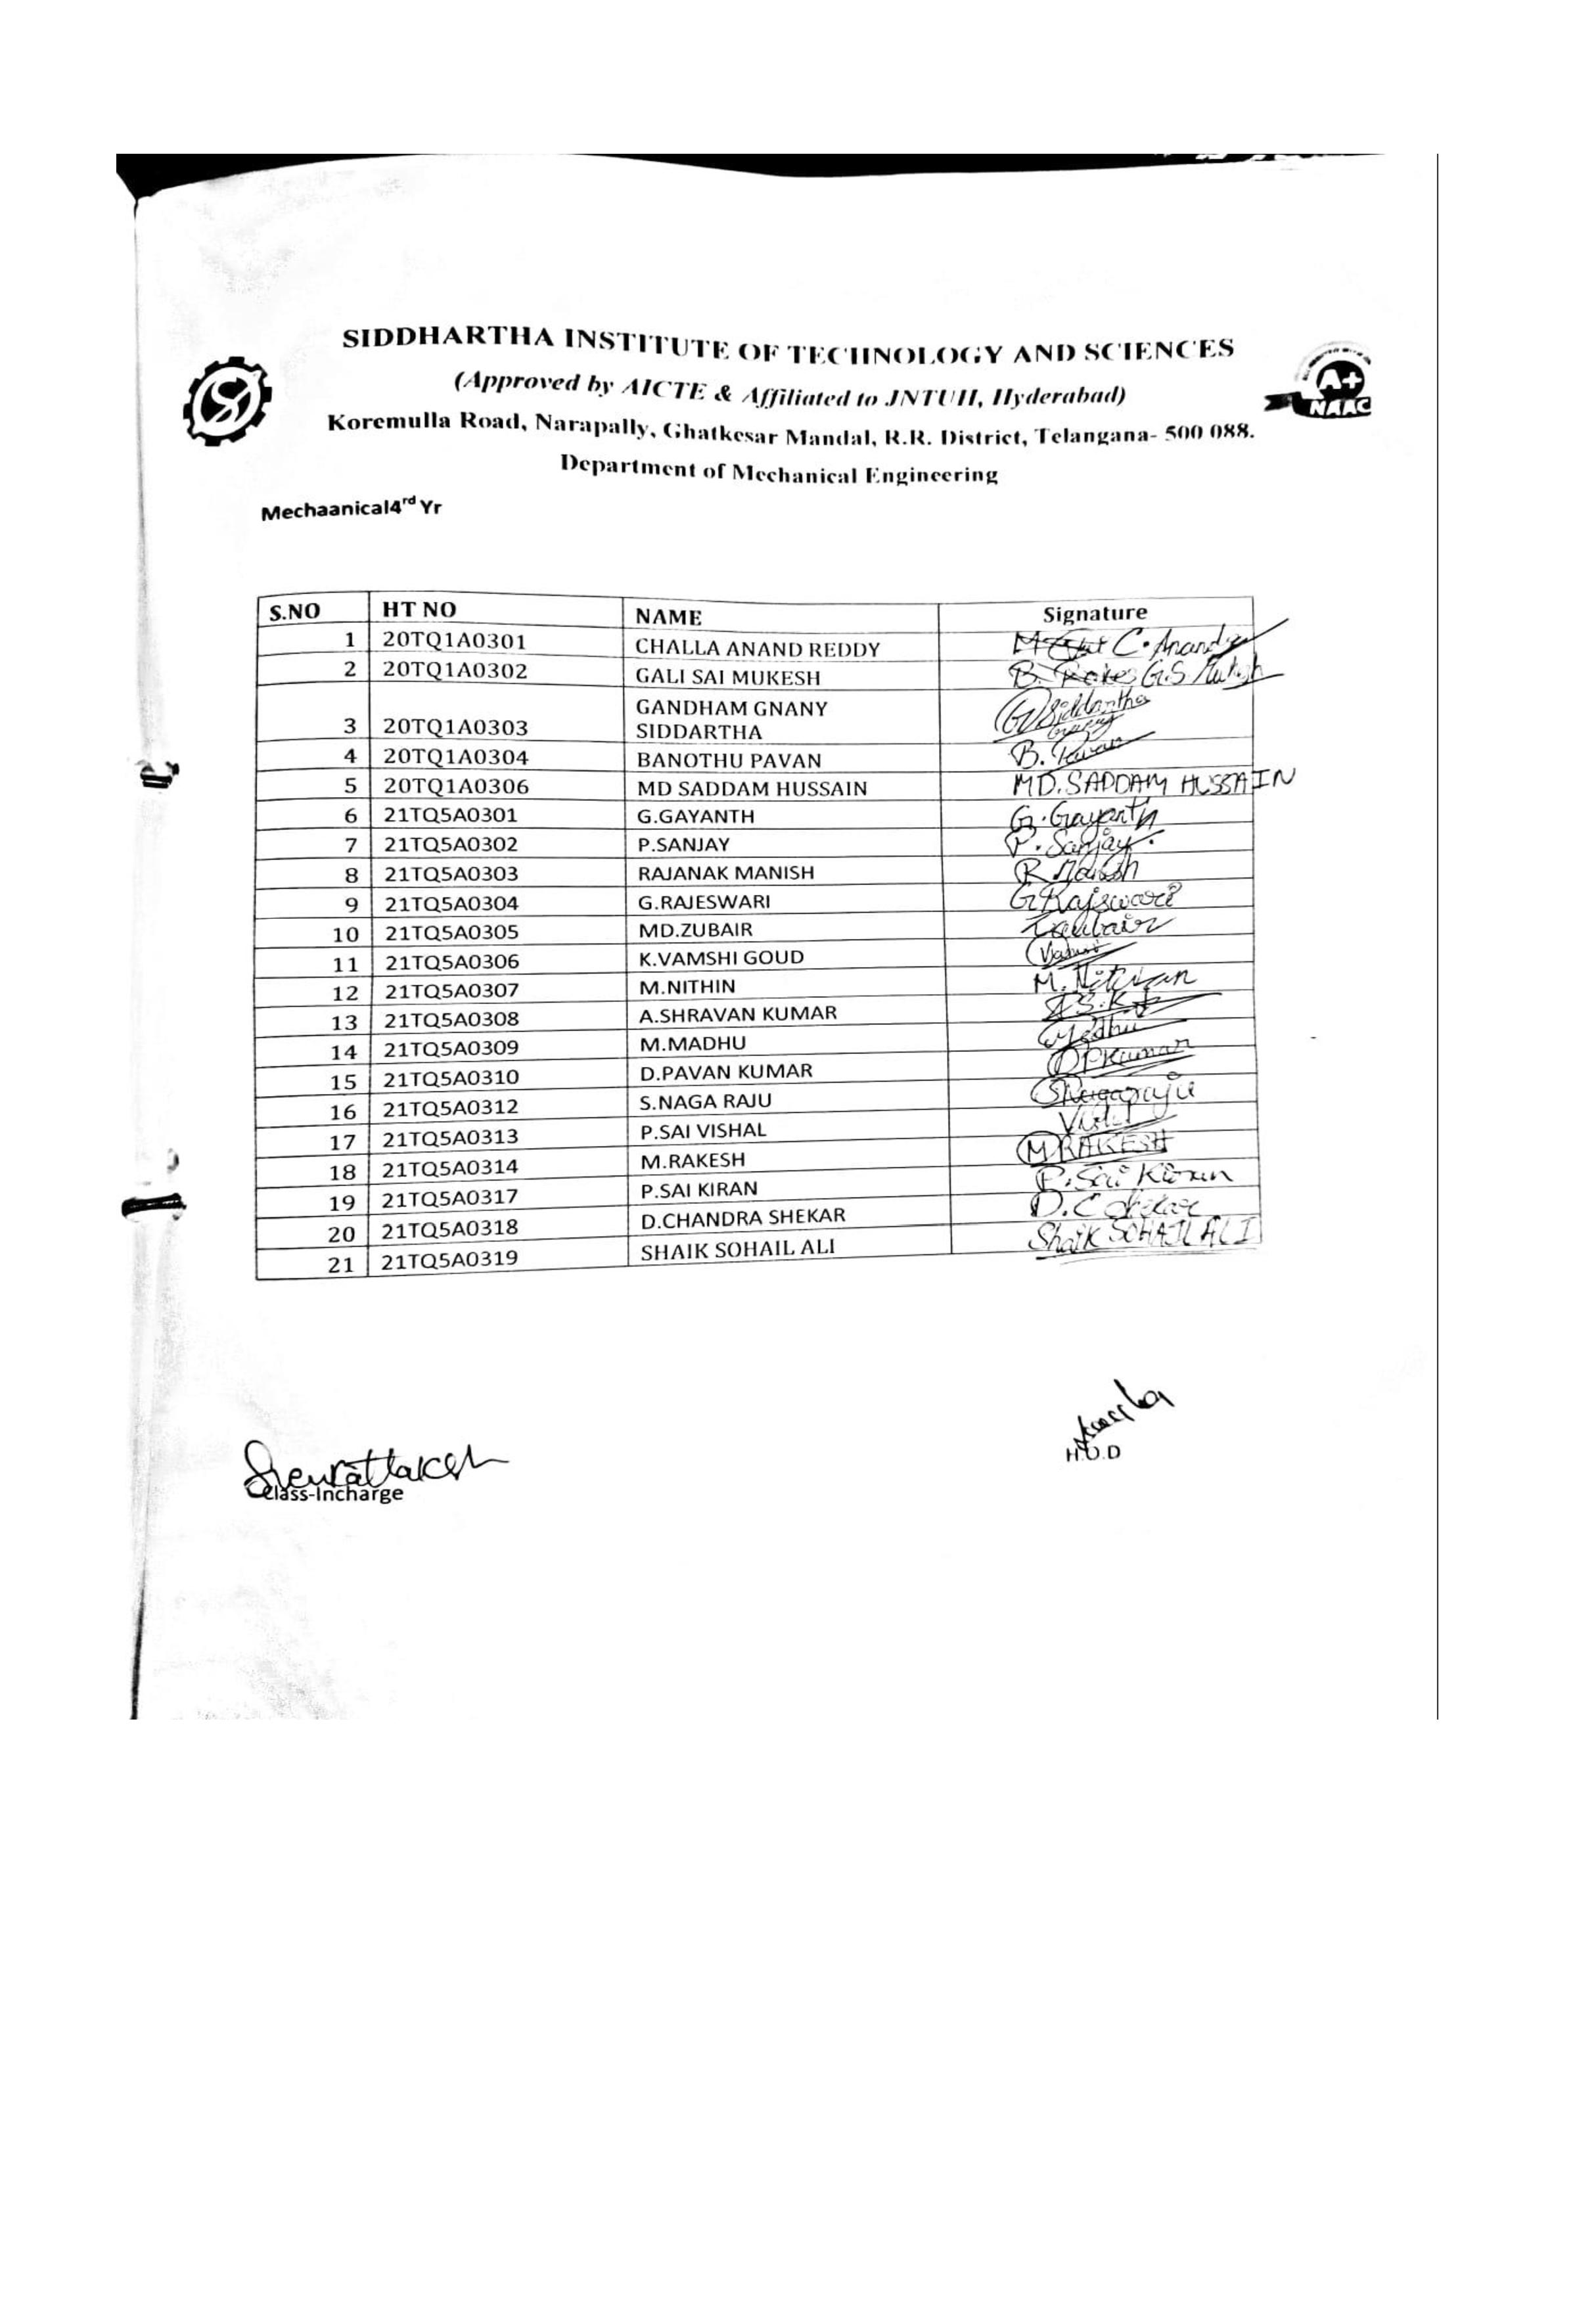 SIDDHARTHA INSTITUTE OF TECHNOLOGY AND SCIENCES
(Approved by AICTE & Affiliated to JNTUH, Hyderabad)
A+
NAAC
Koremulla Road, Narapally, Ghatkesar Mandal, R.R. District, Telangana- 500 088.
Department of Mechanical Engineering
Mechaanical4rd Yr
S.NO HT NO NAME Signature
1 20TQ1A0301 CHALLA ANAND REDDY C. Anand
2 20TQ1A0302 GALI SAI MUKESH G.S Mukesh
GANDHAM GNANY
3 20TQ1A0303 SIDDARTHA G Siddartha
4 20TQ1A0304 BANOTHU PAVAN B. Pavan
5 20TQ1A0306 MD SADDAM HUSSAIN MD. SADDAM HUSSAIN
6 21TQ5A0301 G.GAYANTH G. Gayanth
7 21TQ5A0302 P.SANJAY P. Sanjay.
8 21TQ5A0303 RAJANAK MANISH R Manish
9 21TQ5A0304 G.RAJESWARI G Rajswari
10 21TQ5A0305 MD.ZUBAIR
11 21TQ5A0306 K.VAMSHI GOUD
12 21TQ5A0307 M.NITHIN M.
13 21TQ5A0308 A.SHRAVAN KUMAR
14 21TQ5A0309 M.MADHU Madhu
15 21TQ5A0310 D.PAVAN KUMAR DPKumar
16 21TQ5A0312 S.NAGA RAJU S Nagaraju
17 21TQ5A0313 P.SAI VISHAL
18 21TQ5A0314 M.RAKESH M RAKESH
19 21TQ5A0317 P.SAI KIRAN P. Sai Kiran
20 21TQ5A0318 D.CHANDRA SHEKAR D. C Shekar
21 21TQ5A0319 SHAIK SOHAIL ALI Shaik SOHAIL ALI
H.O.D
Class-Incharge